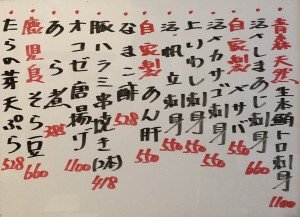 青森天然 生本鮪トロ刺身 1100
活〆しまあじ刺身
自家製 〆サバ 550
活〆カサゴ刺身 550
刺身 550
活帆立刺身 550
自家製 あん肝 550
なまこ酢 528
豚ハラミ串焼き(2本) 418
オコゼ唐揚げ 1100
あら煮
鹿児島 そら豆 660
たらの芽天ぷら 528